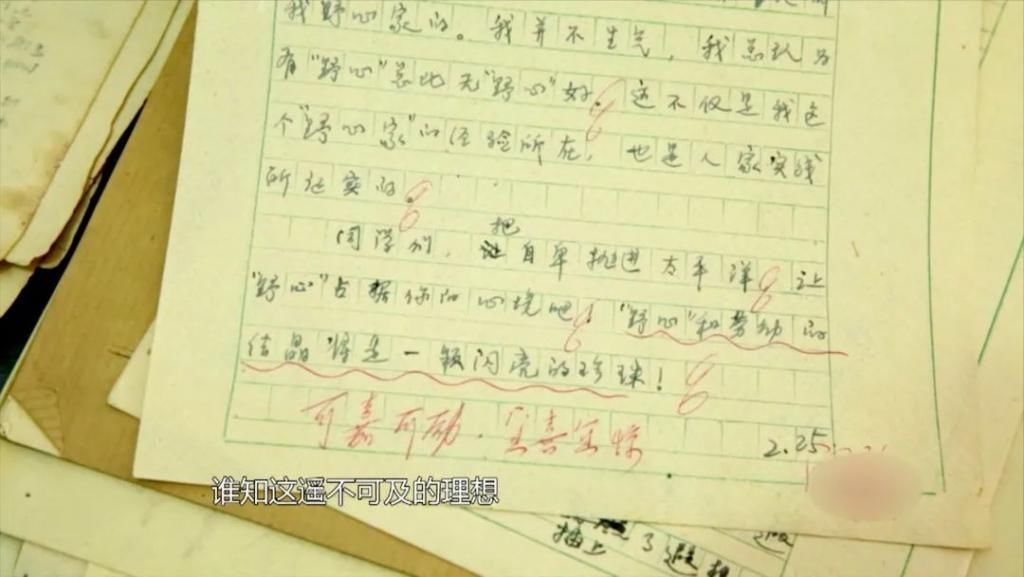 我野心家的。我并不生气，我总认为
有"野心"总比无"野心"好。这不仅是我这
个"野心家"的经验所在，也是人家实践
所证实的。
把
同学们，让自卑抛进太平洋，让
"野心"占据你的心境吧！"野心"和劳动的
结晶 一颗闪亮的珍珠！
可嘉可励，实喜实惊
2.25
谁知这遥不可及的理想
插上了遐想